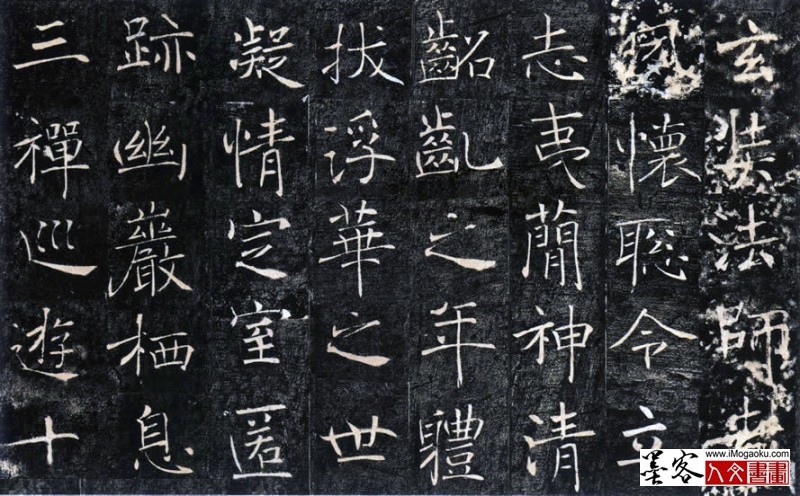 玄奘法師者
夙懷聰令立
志夷簡神清
齠齔之年體
拔浮華之世
凝情定室匿
跡幽巖栖息
三禪巡遊十
墨客 www.iMogaoku.com
人文書畫